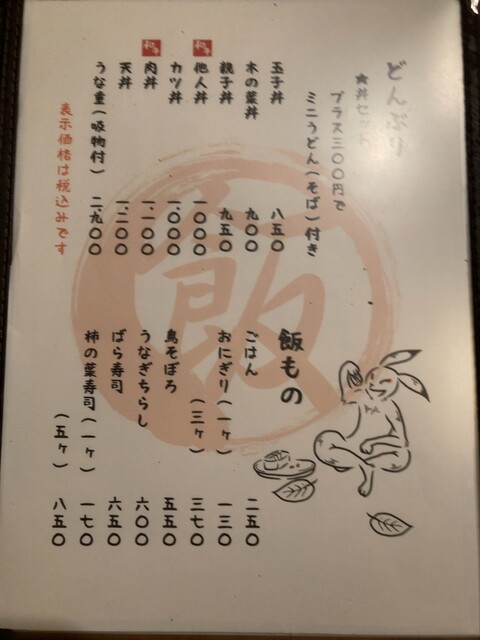 どんぶり
★丼セット
プラス三〇〇円で
ミニうどん(そば)付き
玉子丼 八五〇
木の葉丼 九〇〇
親子丼 九五〇
和牛 他人丼 一〇〇〇
カツ丼 一、〇〇〇
和牛 肉丼 一、一〇〇
天丼 一、二〇〇
うな重(吸物付) 二、九〇〇
表示価格は税込みです
飯もの
ごはん 二五〇
おにぎり(一ヶ) 一三〇
(三ヶ) 三七〇
鳥そぼろ 五五〇
うなぎちらし 六〇〇
ばら寿司 六五〇
柿の葉寿司(一ヶ) 一七〇
(五ヶ) 八五〇
飯